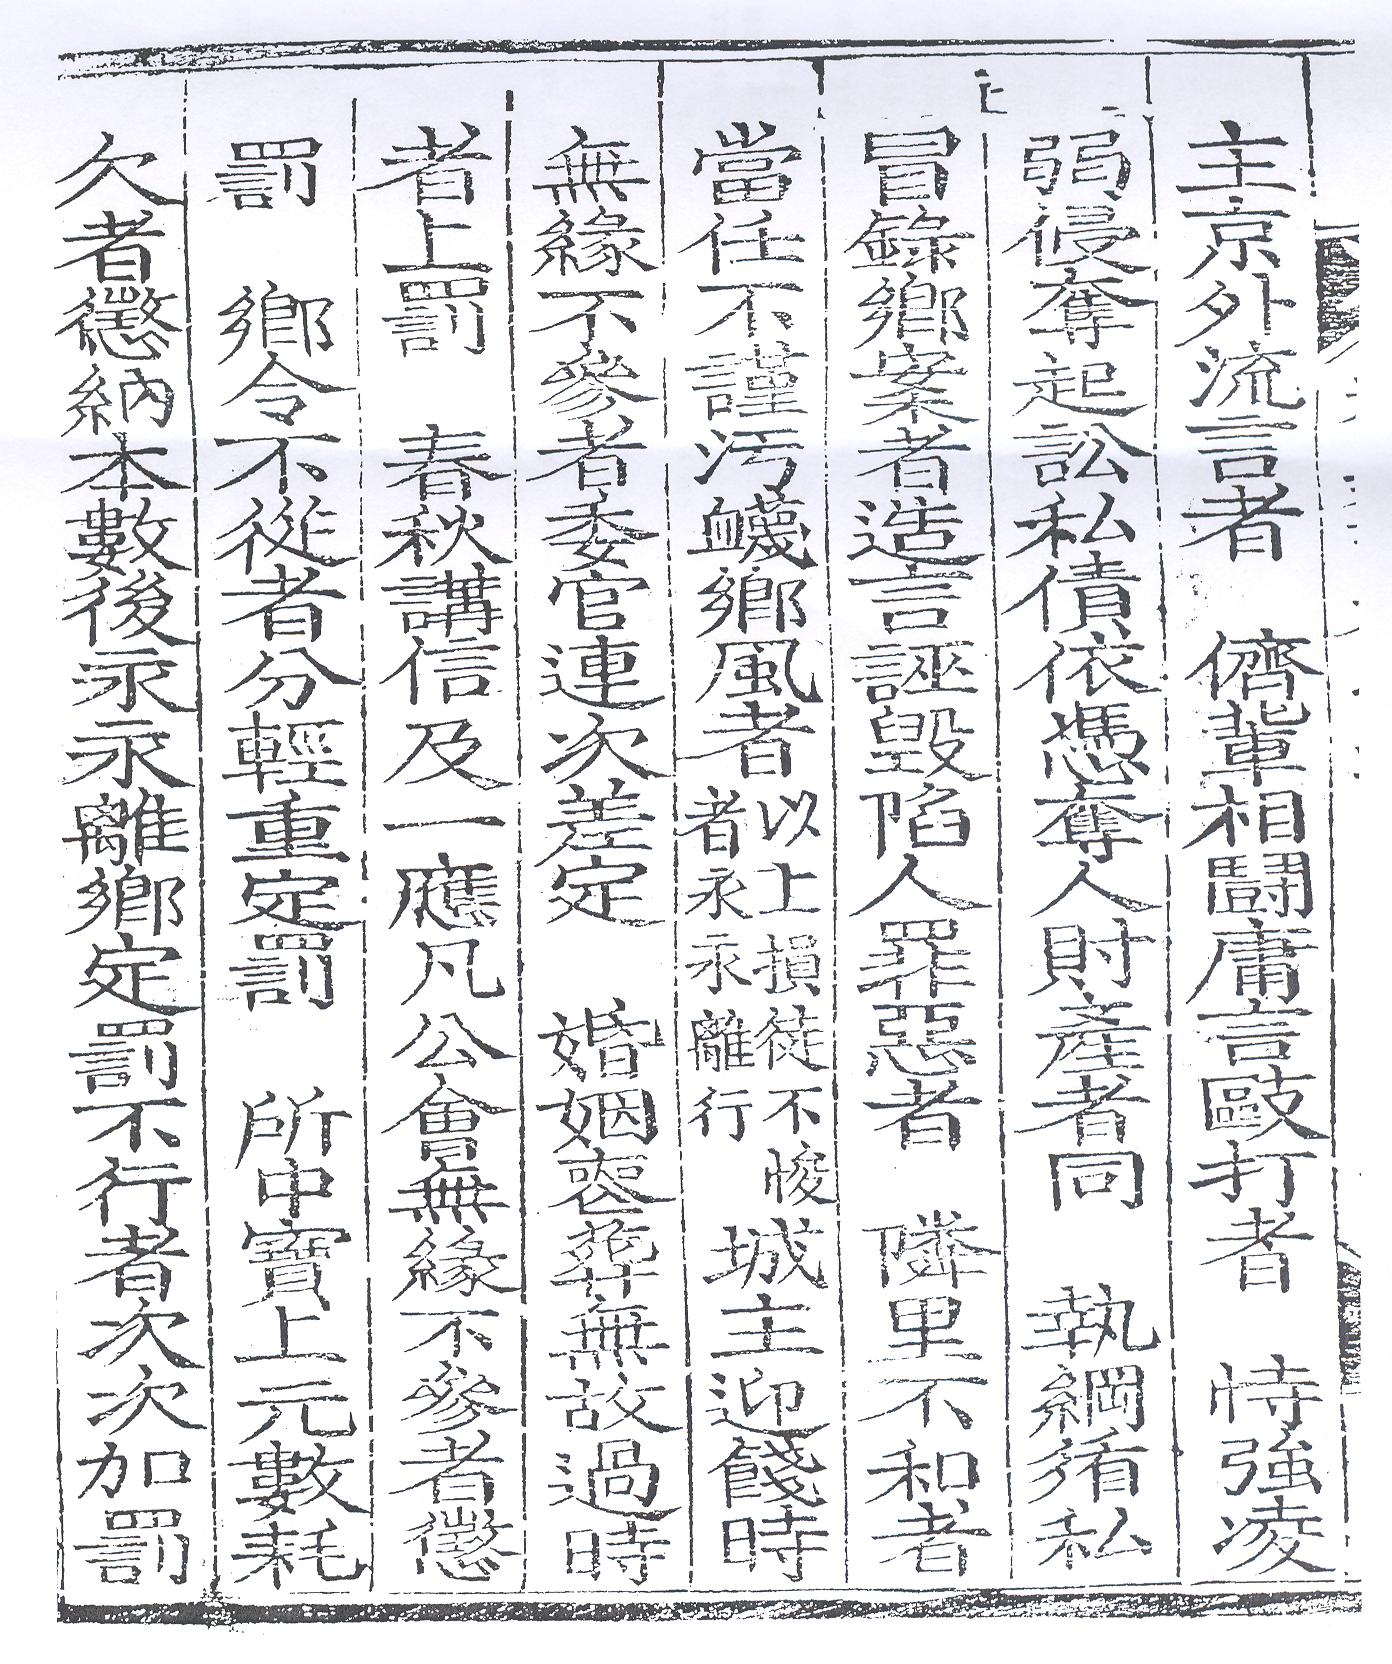 主京外流言者　儕輩相鬪庸言毆打者　恃強凌
弱侵奪起訟私債依憑奪人財產者同　執綱循私
冒錄鄉案者造言誣毀陷人罪惡者　隣里不和者
當任不謹汚衊鄕風者以上損徒不悛者永永離行城主迎餞時
無緣不參者委官連次差定　婚姻喪葬無故過時
者上罰　春秋講信及一應凡公會無緣不參者懲
罰　鄕令不從者分輕重定罰　所中寶上元數耗
欠者懲納本數後永永離鄕定罰不行者次次加罰